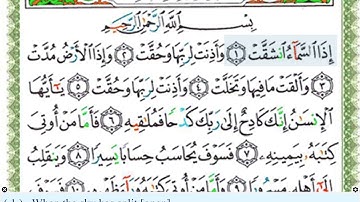 بِسْمِ ٱللَّهِ ٱلرَّحْمَٰنِ ٱلرَّحِيمِ
إِذَا ٱلسَّمَآءُ ٱنشَقَّتْ ١ وَأَذِنَتْ لِرَبِّهَا وَحُقَّتْ ٢ وَإِذَا ٱلْأَرْضُ مُدَّتْ
٣ وَأَلْقَتْ مَا فِيهَا وَتَخَلَّتْ ٤ وَأَذِنَتْ لِرَبِّهَا وَحُقَّتْ ٥ يَٰٓأَيُّهَا
ٱلْإِنسَٰنُ إِنَّكَ كَادِحٌ إِلَىٰ رَبِّكَ كَدْحًا فَمُلَٰقِيهِ ٦ فَأَمَّا مَنْ أُوتِىَ
كِتَٰبَهُۥ بِيَمِينِهِۦ ٧ فَسَوْفَ يُحَاسَبُ حِسَابًا يَسِيرًا ٨ وَيَنقَلِبُ
إِلَىٰٓ أَهْلِهِۦ مَسْرُورًا ٩ وَأَمَّا مَنْ أُوتِىَ